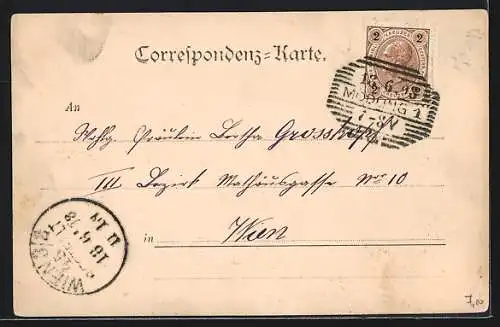 2 2
Correspondenz=Karte.
18 6 98
MÖDLING 1
7-8N
An
Wohlg. Fräulein Bertha Grosskopf
III Bezirk Mathäusgasse No 10
in Wien
WIEN
18 6 98
7,00